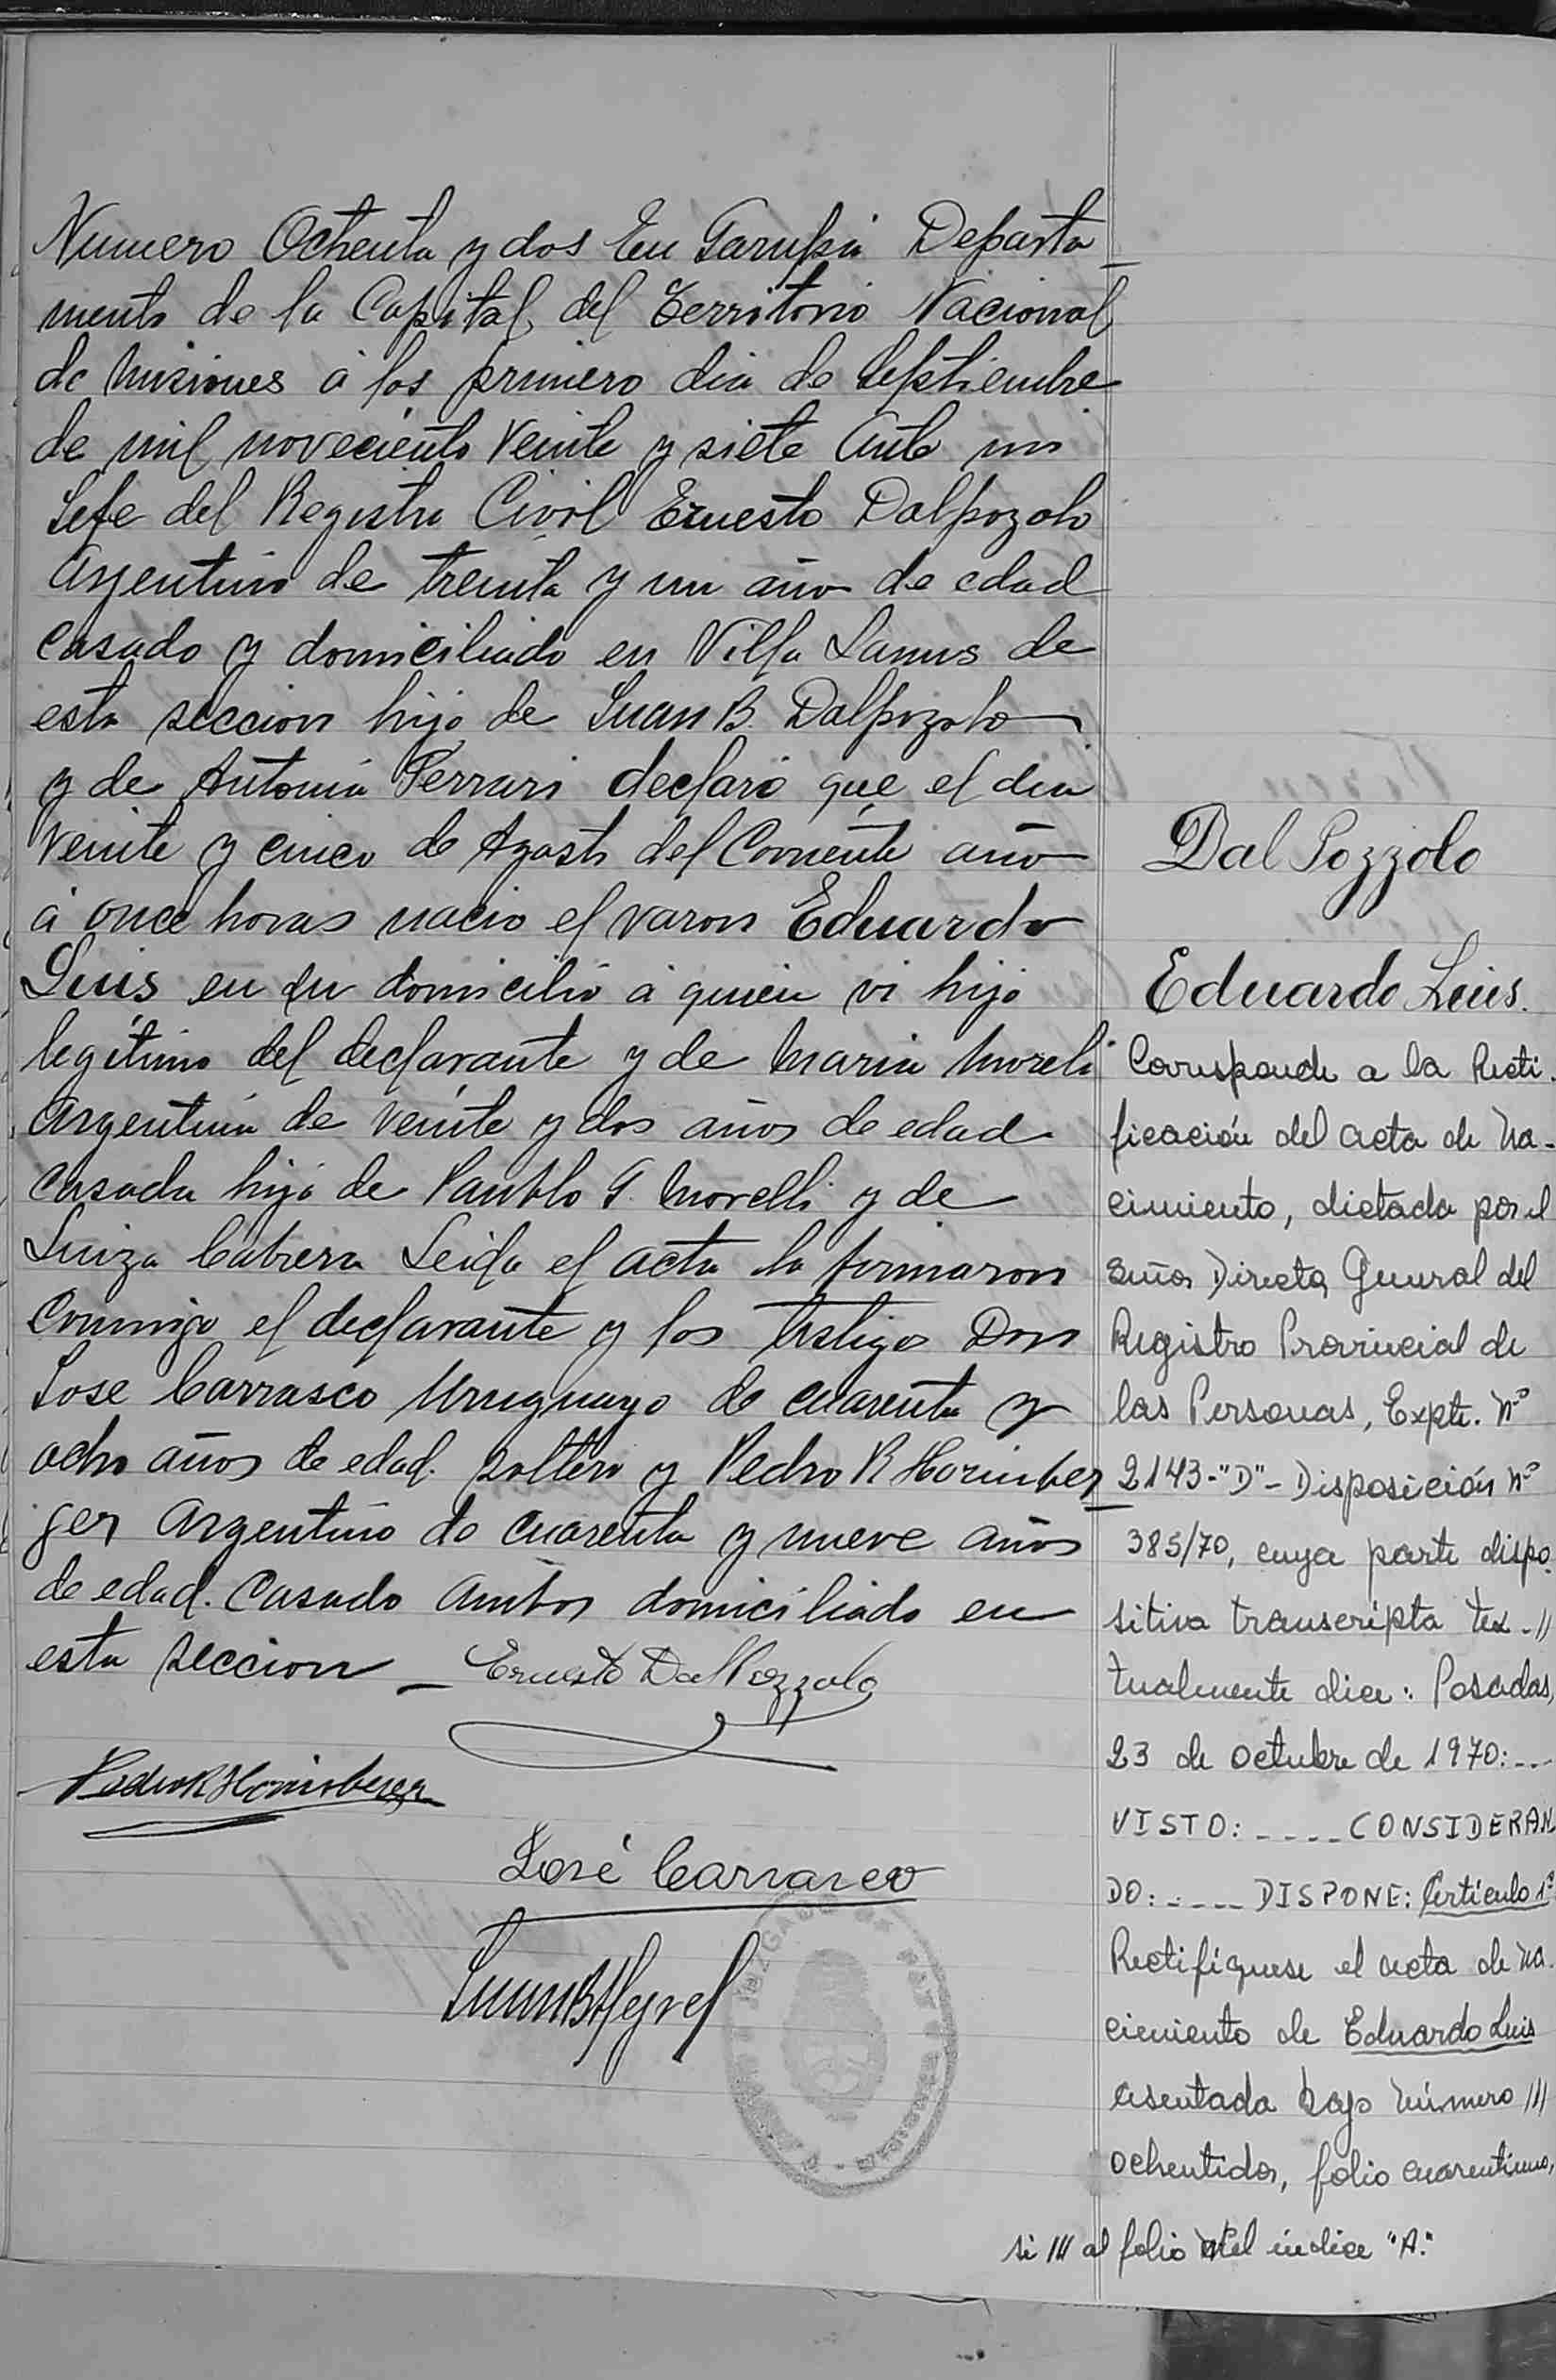 Numero Ochenta y dos En Garupá Departa
mento de la Capital del Territorio Nacional
de Misiones á los primero dia de Septiembre
de mil noveciento Veinte y siete Ante mi
Jefe del Registro Civil Ernesto Dalpozolo
Argentino de treinta y un año de edad
Casado y domiciliado en Villa Lanus de
esta seccion hijo de Juan B. Dalpozolo
y de Antonia Ferrari declaró que el dia
Veinte y cinco de Agosto del Corriente año
á once horas nacio el varon Eduardo
Luis en su domicilio á quien vi hijo
legitimo del declarante y de Maria Moreli
Argentina de veinte y dos años de edad
Casada hija de Panblo G. Morelli y de
Luiza Cabrera Leida el acta la firmaron
Conmigo el declarante y los testigo Don
Jose Carrasco Uruguayo de cuarenta y
ocho años de edad. soltero y Pedro R Horinber
ger Argentino de cuarenta y nueve años
de edad. Casado ambos domiciliado en
esta seccion – Ernesto Dal Pozzolo
José Carrasco
Dal Pozzolo
Eduardo Luis.
Corresponde a la Recti-
ficación del acta de Na-
cimiento, dictada por el
señor Director General del
Registro Provincial de
las Personas, Expte. Nº
2143-"D"- Disposición Nº
385/70, cuya parte dispo-
sitiva transcripta tex-//
tualmente dice: Posadas,
23 de octubre de 1970:---
VISTO: ---- CONSIDERAN
DO: ---- DISPONE: Artículo 1º
Rectifíquese el acta de na-
cimiento de Eduardo Luis
asentada bajo número ///
ochentidos, folio cuarentiuno,
si /// al folio del índice "A."